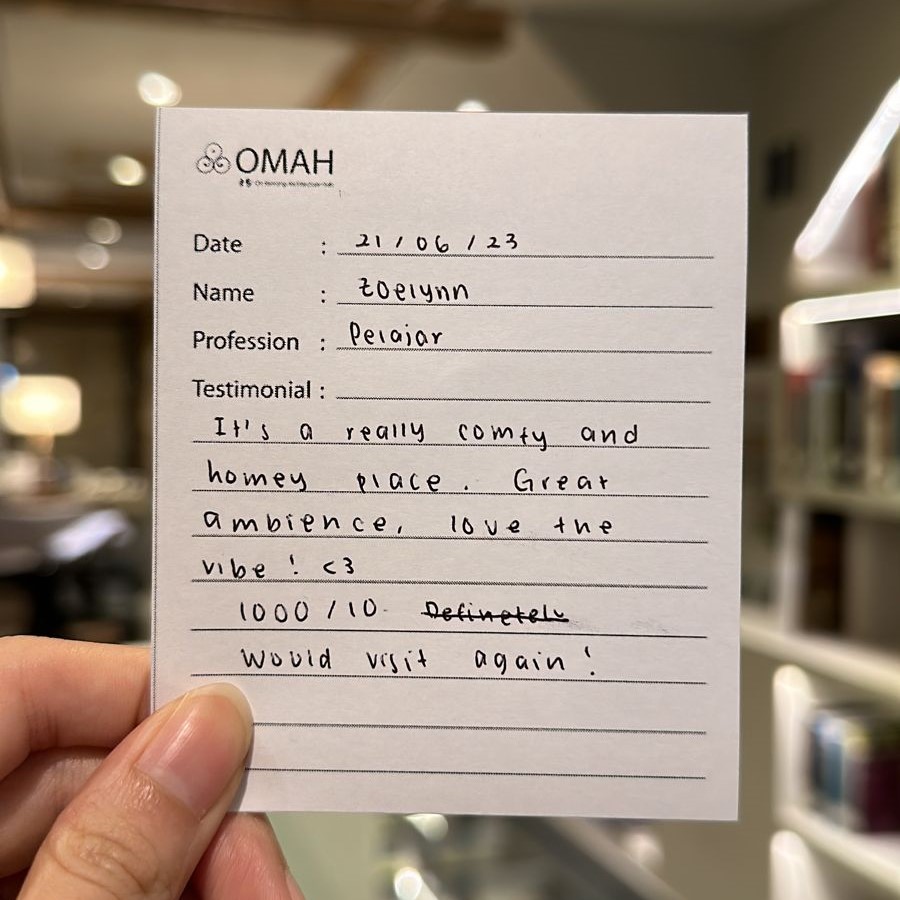 OMAH
Date : 21 / 06 / 23
Name : Zoelynn
Profession : Pelajar
Testimonial :
It's a really comfy and
homey place. Great
ambience, love the
vibe! <3
1000 / 10. Definetely
Would visit again!